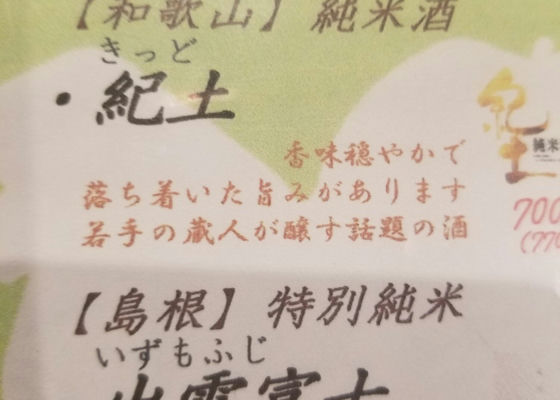 【和歌山】純米酒
きっど
・紀土
香味穏やかで
落ち着いた旨みがあります
若手の蔵人が醸す話題の酒
紀土
純米
700
(770
【島根】特別純米
いずもふじ
出雲富士